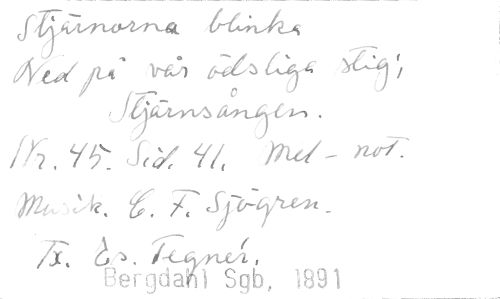 Stjärnorna blinka
Ned på vår ödsliga stig;
Stjärnsången.
Nr. 45. Sid. 41. Mel-not.
Musik. C. F. Sjögren.
Tx. Es. Tegnér.
Bergdahl Sgb, 1891